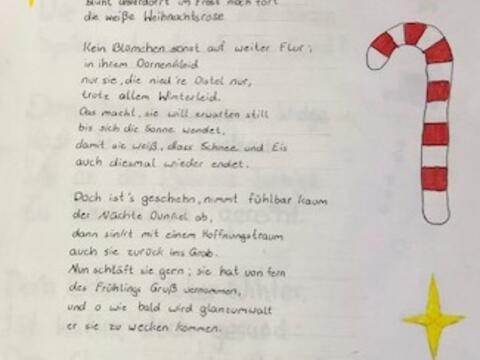 blüht unverdorrt im Frost noch fort
die weiße Weihnachtsrose
Kein Blümchen sonst auf weiter Flur;
in ihrem Dornenkleid
nur sie, die nied're Distel nur,
trotz allem Winterleid.
Das macht, sie will erwarten still
bis sich die Sonne wendet,
damit sie weiß, dass Schnee und Eis
auch diesmal wieder endet.
Doch ist's geschehn, nimmt fühlbar kaum
der Nächte Dunkel ab,
dann sinkt mit einem Hoffnungstraum
auch sie zurück ins Grab.
Nun schläft sie gern; sie hat von fern
des Frühlings Gruß vernommen,
und o wie bald wird glanzumwallt
er sie zu wecken kommen.